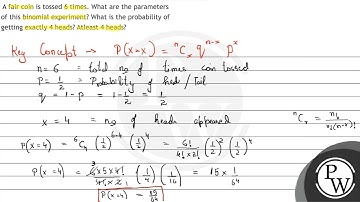 A fair coin is tossed 6 times. What are the parameters
of this binomial experiment? What is the probability of
getting exactly 4 heads? Atleast 4 heads?
Key Concept → P(X=x) = ⁿCₓ qⁿ⁻ˣ pˣ
n = 6 = total no of times coin tossed
P = 1/2 = Probability of head/Tail
q = 1-P = 1-1/2 = 1/2
x = 4 = no of heads appeared
ⁿCᵣ = n!/r!(n-r)!
P(X=4) = ⁶C₄ (1/2)⁶⁻⁴ (1/2)⁴ = 6!/4! × 2! (1/2)² (1/2)⁴
P(X=4) = 6×5×4!/4!×2 (1/4) (1/16) = 15 × 1/64
P(X=4) = 15/64
PW